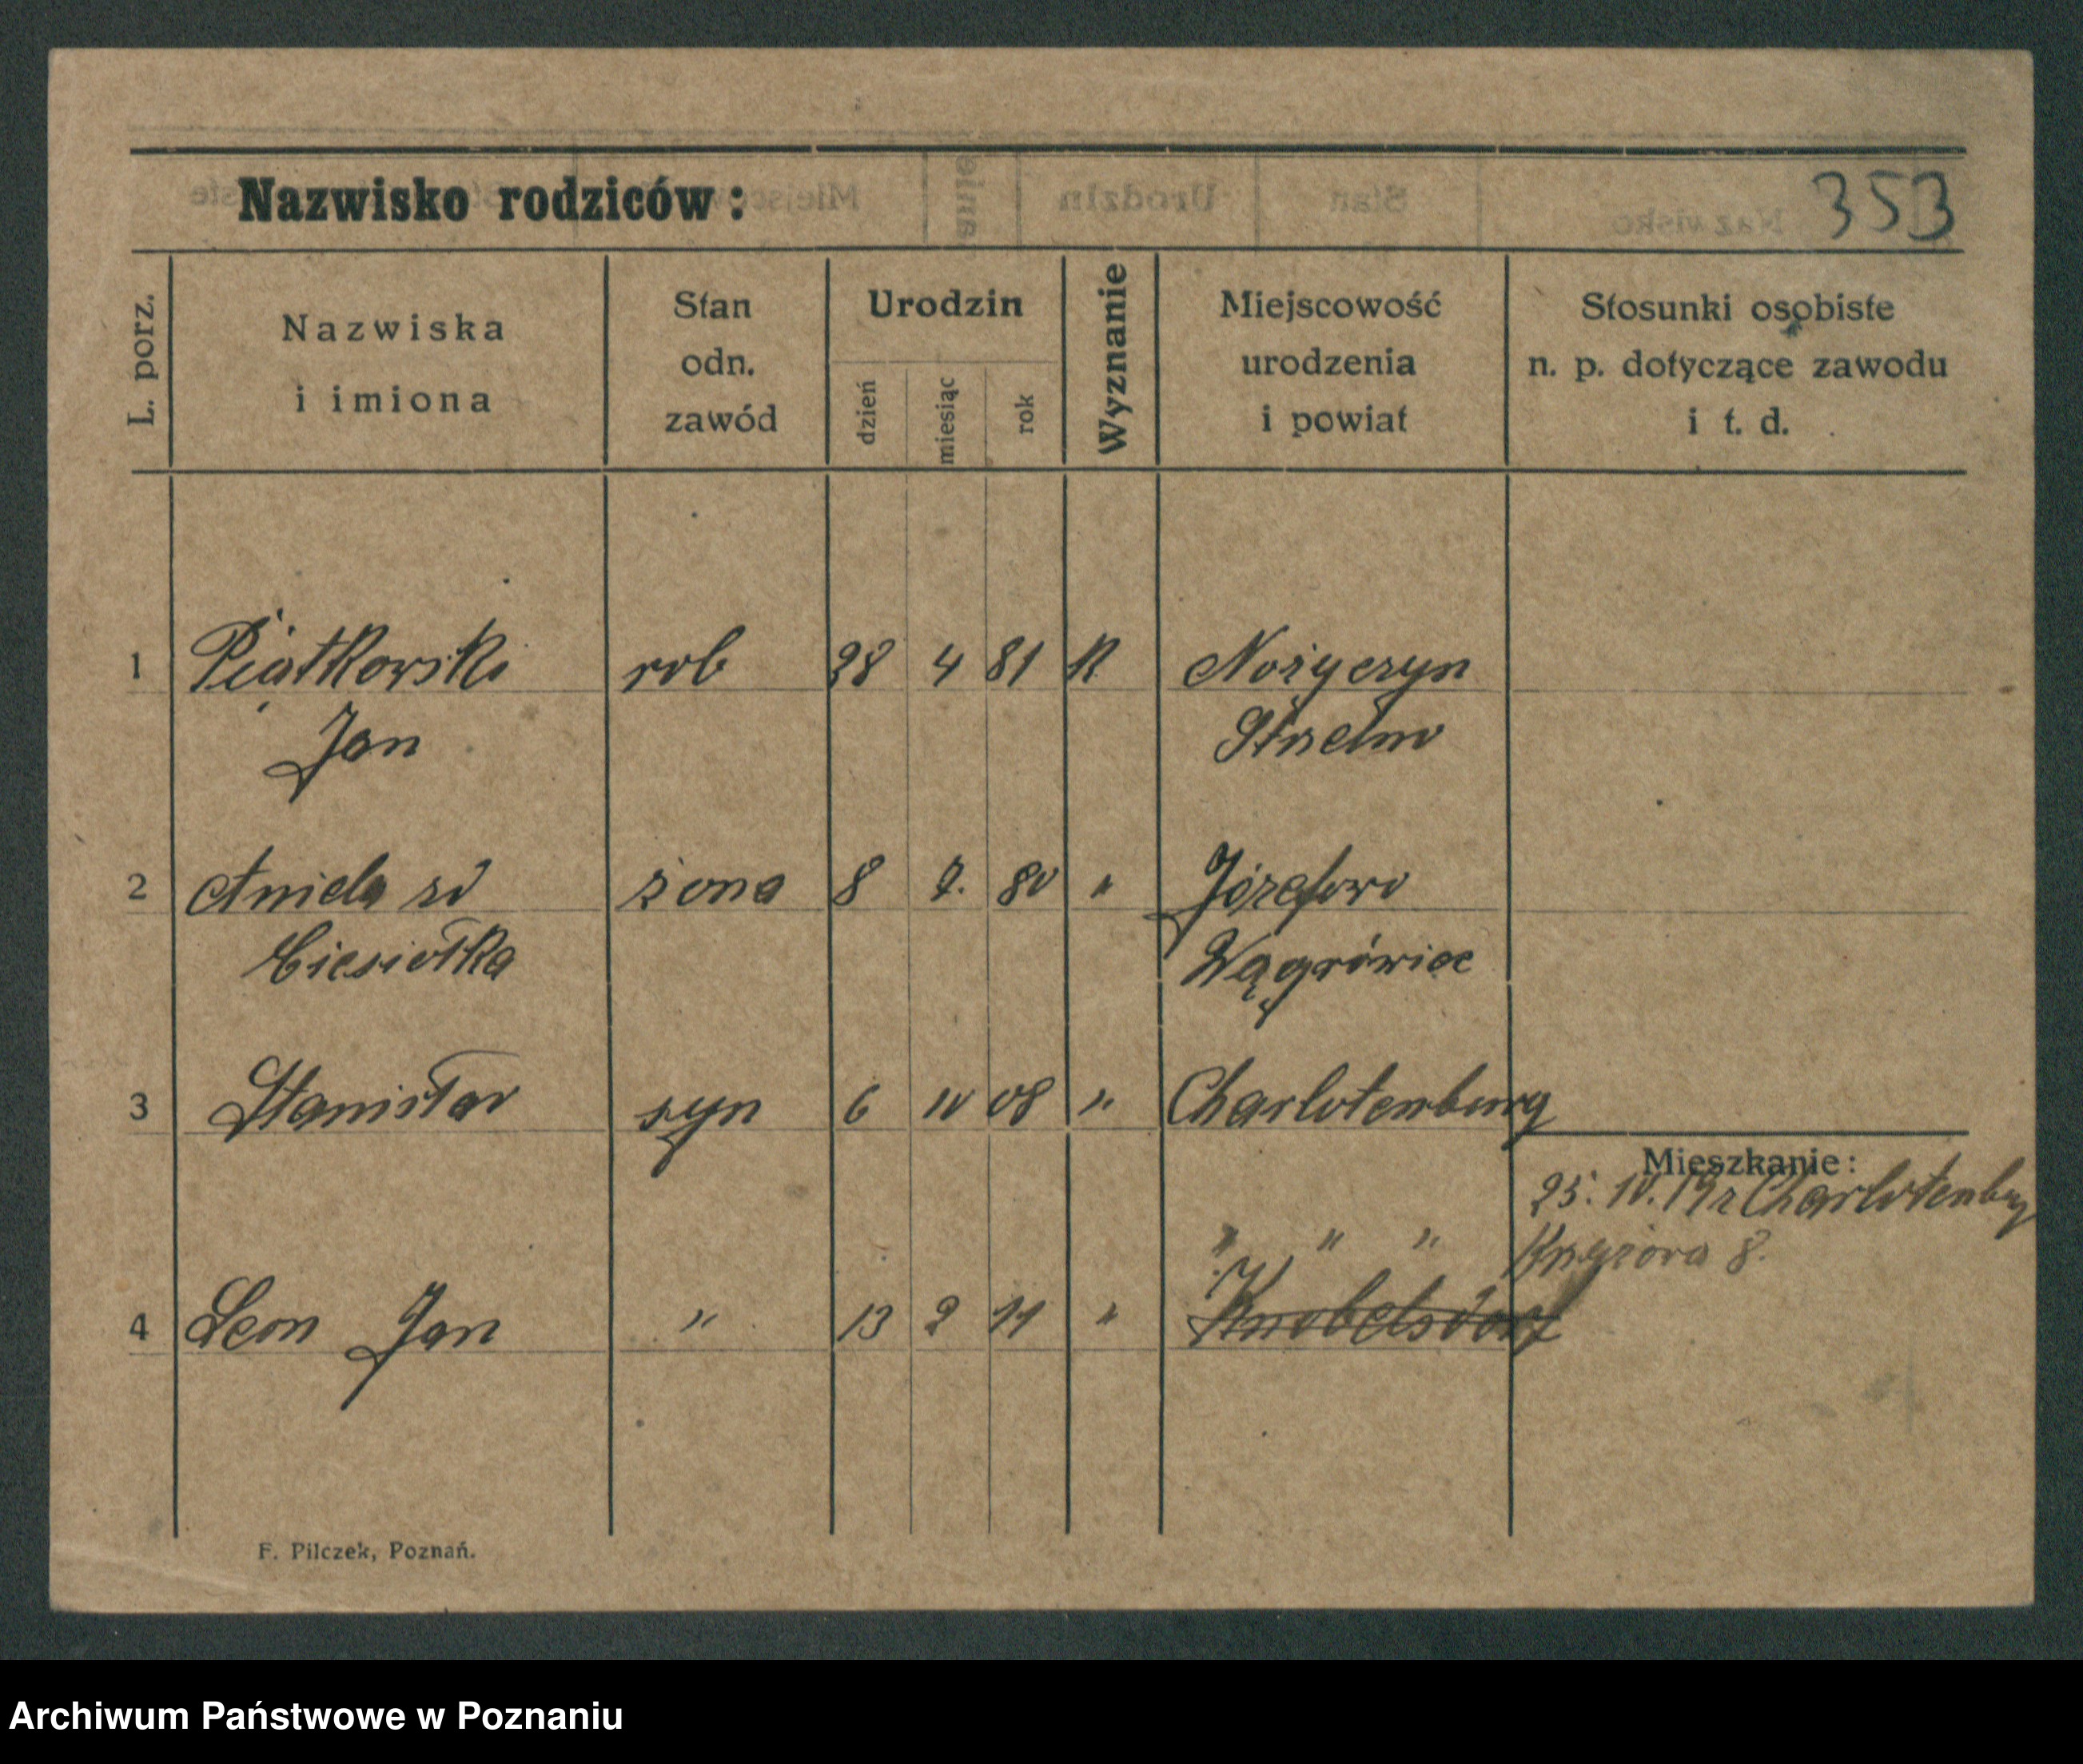 Nazwisko rodziców:
353
L. porz.
Nazwiska
i imiona
Stan
odn.
zawód
Urodzin
dzień
miesiąc
rok
Wyznanie
Miejscowość
urodzenia
i powiat
Stosunki osobiste
n. p. dotyczące zawodu
i t. d.
1 Piątkowski rob 28 4 81 K Nożyczyn
Jan Strzelno
2 Aniela żona 8 80 " Józefowo
Ciesiołka Wągrówiec
3 Stanisław syn 6 08 " Charlotenburg
Mieszkanie:
25. IV. 19 r Charlotenburg
" " "
8.
4 Leon Jan " 13 2 11 " Knobelsdorf
F. Pilczek, Poznań.
Archiwum Państwowe w Poznaniu